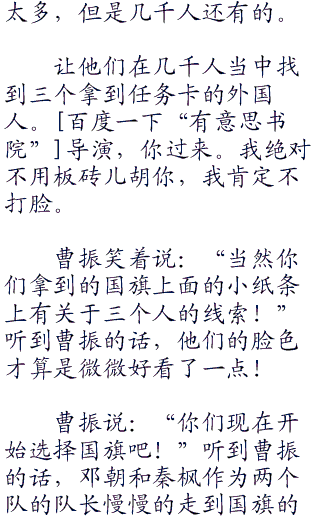 太多，但是几千人还有的。
让他们在几千人当中找
到三个拿到任务卡的外国
人。[百度一下“有意思书
院”]导演，你过来。我绝对
不用板砖儿胡你，我肯定不
打脸。
曹振笑着说：“当然你
们拿到的国旗上面的小纸条
上有关于三个人的线索！”
听到曹振的话，他们的脸色
才算是微微好看了一点！
曹振说：“你们现在开
始选择国旗吧！”听到曹振
的话，邓朝和秦枫作为两个
队的队长慢慢的走到国旗的